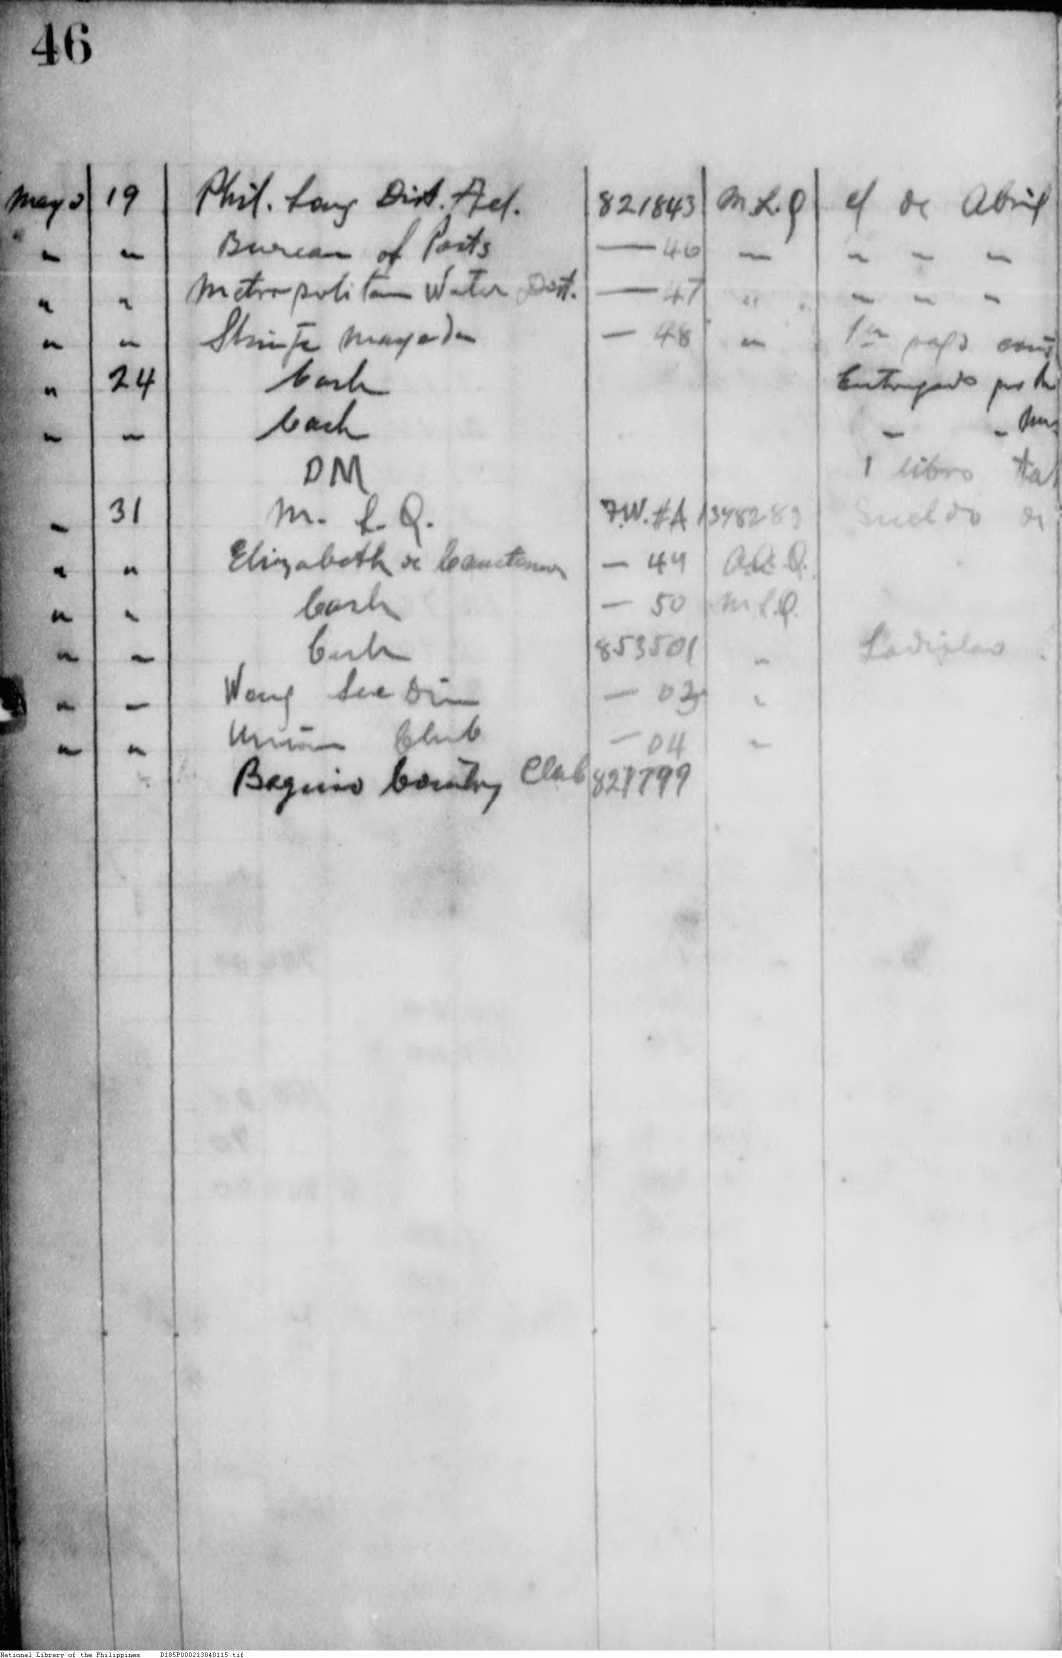 46
Mayo 19 Phil. Long Dist. Tel. 821843 M.L.Q el de Abril
" " Bureau of Posts — 46 " " " "
" " Metropolitan Water Dist. — 47 " " " "
" " — 48 " 1er pago
" 24 Cash Entregado por
" " Cash " "
DM 1 libro
" 31 M. L. Q. F.W. #A 1348283 Sueldo de
" " Elizabeth de — 49 A.A.Q.
" " Cash — 50 M.L.Q.
" " Cash 853501 " Ladislao
" " Wong See Dim — 03 "
" " Union Club — 04 "
Baguio Country Club 821799
National Library of the Philippines D185P000213840115.tif